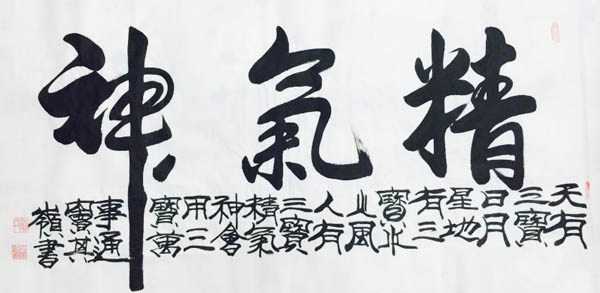 精氣神
天有
三寶
日月
星地
有三
寶水
火風
人有
三寶
精氣
神會
用三
寶萬
事通
竇其
嶺書